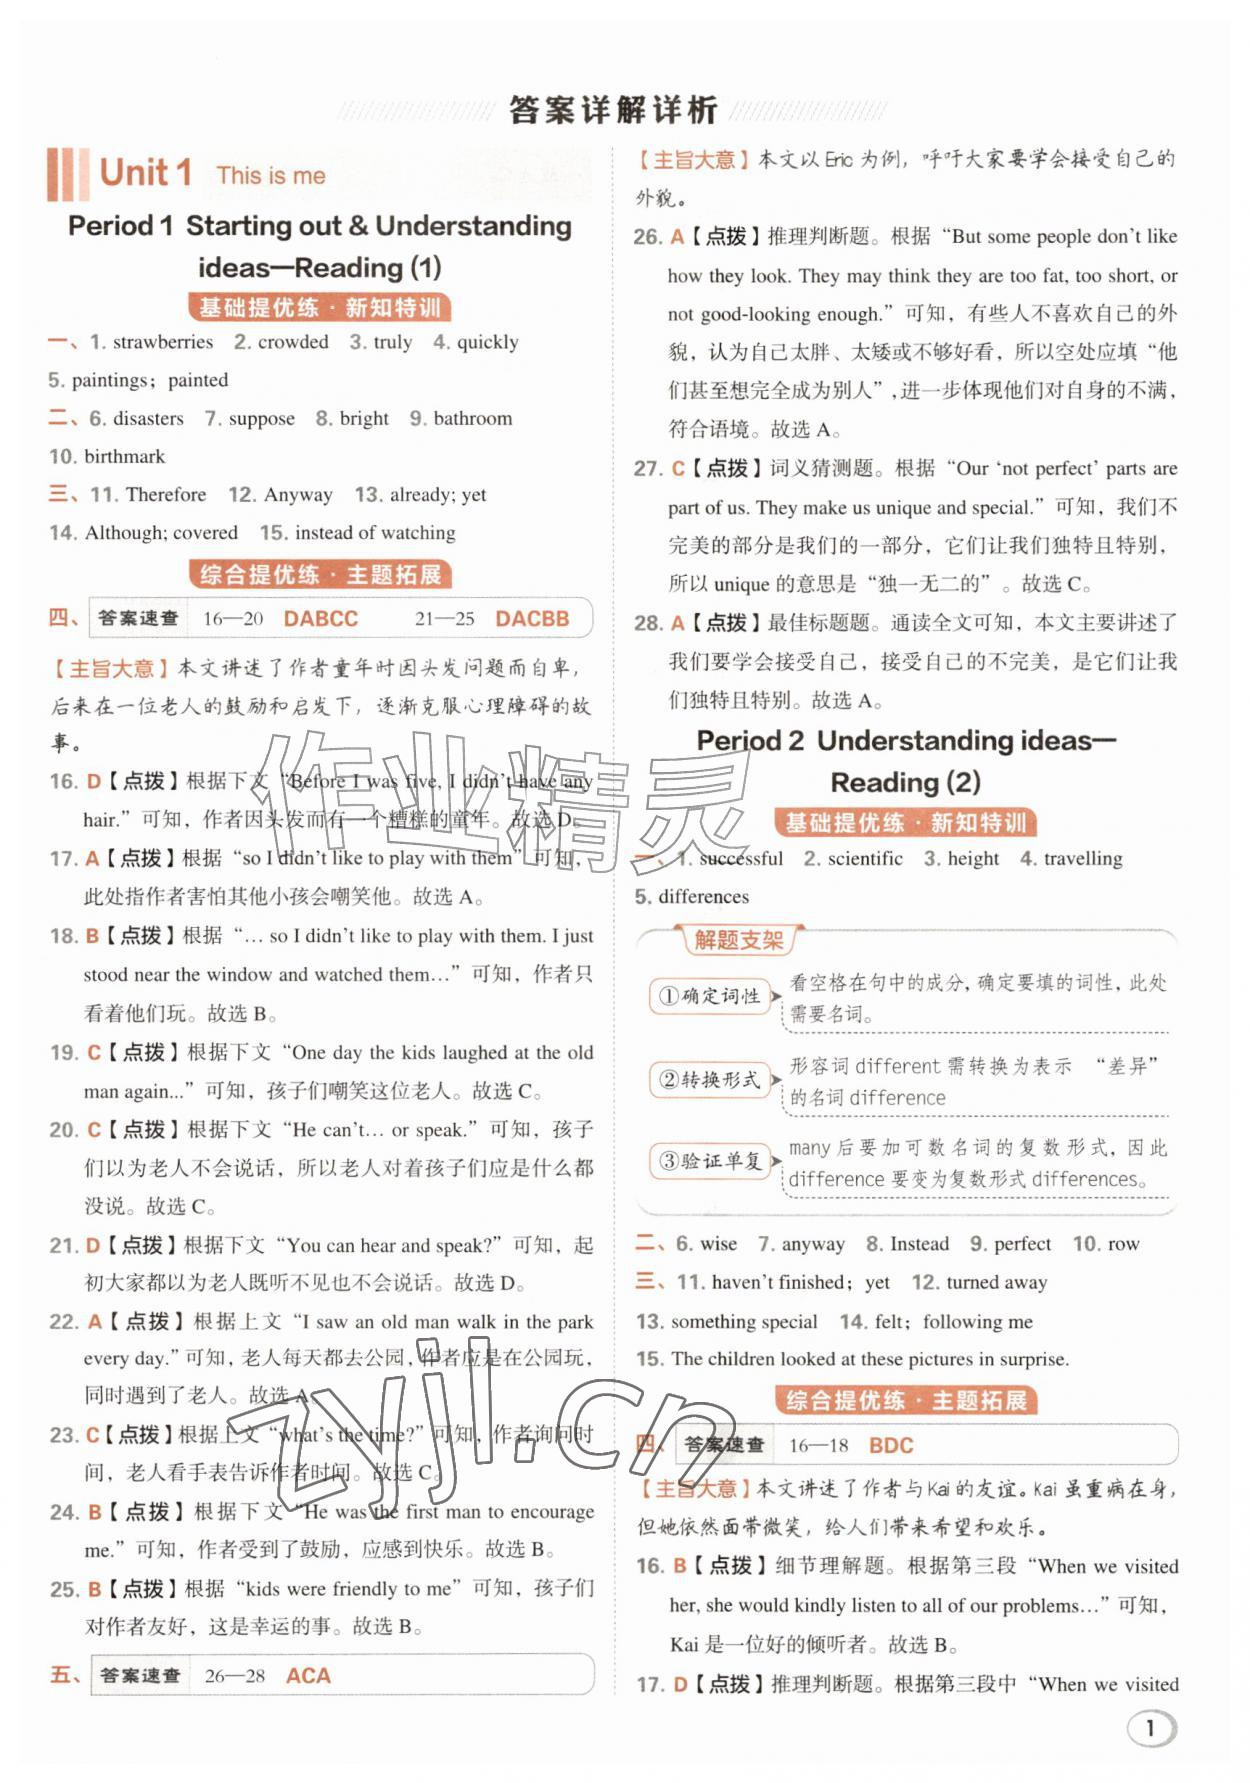 答案详解详析
Unit 1 This is me
Period 1 Starting out & Understanding
ideas—Reading (1)
基础提优练·新知特训
一、1. strawberries 2. crowded 3. truly 4. quickly
5. paintings；painted
二、6. disasters 7. suppose 8. bright 9. bathroom
10. birthmark
三、11. Therefore 12. Anyway 13. already; yet
14. Although; covered 15. instead of watching
综合提优练·主题拓展
四、答案速查 16—20 DABCC 21—25 DACBB
【主旨大意】本文讲述了作者童年时因头发问题而自卑，
后来在一位老人的鼓励和启发下，逐渐克服心理障碍的故
事。
16. D【点拨】根据下文“Before I was five, I didn't have any
hair.”可知，作者因头发而有一个糟糕的童年。故选D。
17. A【点拨】根据“so I didn't like to play with them”可知，
此处指作者害怕其他小孩会嘲笑他。故选A。
18. B【点拨】根据“… so I didn't like to play with them. I just
stood near the window and watched them…”可知，作者只
看着他们玩。故选B。
19. C【点拨】根据下文“One day the kids laughed at the old
man again...”可知，孩子们嘲笑这位老人。故选C。
20. C【点拨】根据下文“He can't… or speak.”可知，孩子
们以为老人不会说话，所以老人对着孩子们应是什么都
没说。故选C。
21. D【点拨】根据下文“You can hear and speak?”可知，起
初大家都以为老人既听不见也不会说话。故选D。
22. A【点拨】根据上文“I saw an old man walk in the park
every day.”可知，老人每天都去公园，作者应是在公园玩，
同时遇到了老人。故选A。
23. C【点拨】根据上文“what's the time?”可知，作者询问时
间，老人看手表告诉作者时间。故选C。
24. B【点拨】根据下文“He was the first man to encourage
me.”可知，作者受到了鼓励，应感到快乐。故选B。
25. B【点拨】根据“kids were friendly to me”可知，孩子们
对作者友好，这是幸运的事。故选B。
五、答案速查 26—28 ACA
【主旨大意】本文以Eric为例，呼吁大家要学会接受自己的
外貌。
26. A【点拨】推理判断题。根据“But some people don't like
how they look. They may think they are too fat, too short, or
not good-looking enough.”可知，有些人不喜欢自己的外
貌，认为自己太胖、太矮或不够好看，所以空处应填“他
们甚至想完全成为别人”，进一步体现他们对自身的不满，
符合语境。故选A。
27. C【点拨】词义猜测题。根据“Our ‘not perfect’ parts are
part of us. They make us unique and special.”可知，我们不
完美的部分是我们的一部分，它们让我们独特且特别，
所以unique的意思是“独一无二的”。故选C。
28. A【点拨】最佳标题题。通读全文可知，本文主要讲述了
我们要学会接受自己，接受自己的不完美，是它们让我
们独特且特别。故选A。
Period 2 Understanding ideas—
Reading (2)
基础提优练·新知特训
一、1. successful 2. scientific 3. height 4. travelling
5. differences
解题支架
①确定词性 看空格在句中的成分，确定要填的词性，此处
需要名词。
②转换形式 形容词different需转换为表示“差异”
的名词difference
③验证单复 many后要加可数名词的复数形式，因此
difference要变为复数形式differences。
二、6. wise 7. anyway 8. Instead 9. perfect 10. row
三、11. haven't finished；yet 12. turned away
13. something special 14. felt；following me
15. The children looked at these pictures in surprise.
综合提优练·主题拓展
四、答案速查 16—18 BDC
【主旨大意】本文讲述了作者与Kai的友谊。Kai虽重病在身，
但她依然面带微笑，给人们带来希望和欢乐。
16. B【点拨】细节理解题。根据第三段“When we visited
her, she would kindly listen to all of our problems…”可知，
Kai是一位好的倾听者。故选B。
17. D【点拨】推理判断题。根据第三段中“When we visited
1
作业精灵
zyjl.cn